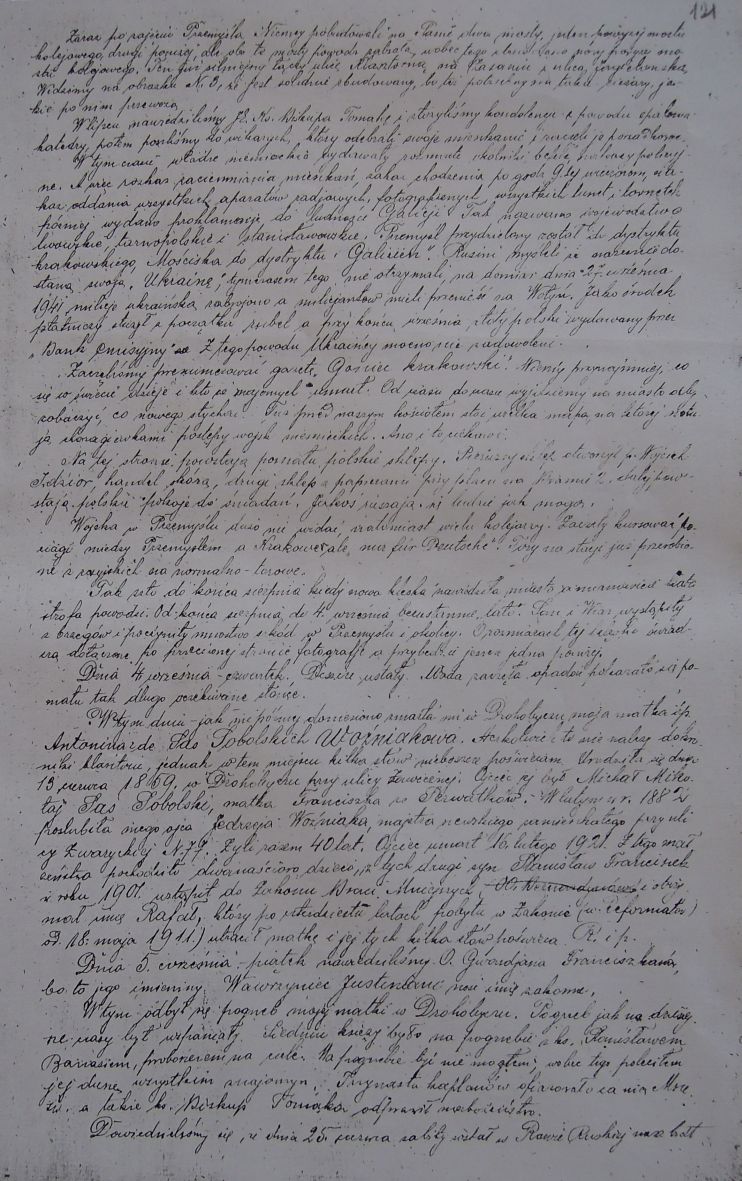 121
Zaraz po zajęciu Przemyśla Niemcy pobudowali na Sanie dwa mosty, jeden powyżej mostu
kolejowego, drugi poniżej, ale oba te mosty powódź zabrała, wobec tego zbudowano nowy powyżej mo-
stu kolejowego. Ten już silniejszy łączy ulicę na Zasaniu z ulicą Jagiellońską.
Widzimy na obrazku N. 3, że jest solidnie zbudowany, bo też potrzebny na takie ciężary, ja-
kie po nim przewożą.
W lipcu nawiedziliśmy JE. Ks. Biskupa Tomakę i złożyliśmy kondolencje z powodu
katedry, potem poszliśmy do wikarych, którzy odebrali swoje mieszkanie i zaczęli je porządkować.
W tym czasie władze niemieckie wydawały rozmaite okólniki
ne. A więc rozkaz zaciemniania mieszkań, zakaz chodzenia po godz. 9tej wieczorem, na-
kaz oddania wszystkich aparatów radjowych, fotograficznych, wszystkich lunet i lornetek
później wydano proklamację do ludności Galicji. Tak nazwano województwo
lwowskie, tarnopolskie i stanisławowskie. Przemyśl przydzielony został do dystryktu
krakowskiego, Mościska do dystryktu "Galizien". Rusini myśleli, że nareszcie do-
staną swoją "Ukrainę", tymczasem tego nie otrzymali, na domiar dnia 27. września
1941 milicję ukraińską rozbrojono a milicjantów mieli przenieść na Wołyń. Jako środek
płatniczy służył z początku rubel a przy końcu września złoty polski wydawany przez
"Bank Emisyjny". Z tego powodu Ukraińcy mocno nie zadowoleni.
Zaczęliśmy prenumerować gazetę "Goniec krakowski". Wiemy przynajmniej, co
się w świecie dzieje i kto ze znajomych umarł. Od czasu do czasu wyjdziemy na miasto aby
zobaczyć, co nowego słychać. Tuż przed naszym kościołem stoi wielka mapa, na której notu-
ją chorągiewkami postępy wojsk niemieckich. Ano i to ciekawe.
Na tej stronie powstają pomału polskie sklepy. Pierwszy sklep otworzył p. Wojciech
Idzior, handel skórą, drugi sklep z papierami przy placu na Bramie
stają polskie pokoje do śniadań. Jakoś ruszają się ludzie jak mogą.
Wojska w Przemyślu dużo nie widać natomiast wielu kolejarzy. Zaczęły kursować po-
ciągi między Przemyślem a Krakowem ale "nur für Deutsche". Tory na stacji już przerobio-
ne z rosyjskich na normalno-torowe.
Tak szło do końca sierpnia kiedy nowa klęska nawiedziła miasto a mianowicie kata-
strofa powodzi. Od końca sierpnia do 4. września bezustannie lało. San i Wiar wystąpiły
z brzegów i poczyniły mnóstwo szkód w Przemyślu i okolicy. O rozmiarach tej klęski świad-
czą dołączone po przeciwnej stronie fotografje a przybędzie jeszcze jedna powięj.
Dnia 4 września - czwartek. Deszcze ustały. Woda zaczęła opadać, pokazało się po-
mału tak długo oczekiwane słońce.
W tym dniu - jak mi później doniesiono zmarła mi w Drohobyczu moja matka śp.
Antonina de Sas Sobolskich Woźniakowa. Aczkolwiek to nie należy do kro-
niki klasztoru, jednak w tem miejscu kilka słów nieboszce poświęcam. Urodziła się dnia
13 czerwca 1869. w Drohobyczu przy ulicy Zawieźnej. Ojciec jej był Michał Miko-
łaj Sas Sobolski, matka Franciszka ze W lutym r. 1882
poślubiła mego ojca Jędrzeja Woźniaka, majstra szewskiego zamieszkałego przy uli-
cy Zwaryckiej N. 77. Żyli razem 40 lat. Ojciec umarł 16. lutego 1921. Z tego mał-
żeństwa pochodziło dwanaścioro dzieci, z tych drugi syn Stanisław Franciszek
w roku 1901. wstąpił do Zakonu Braci Mniejszych i otrzy-
mał imię Rafał, który po czterdziestu latach pobytu w Zakonie (u Reformatów)
od 18. maja 1911.) utracił matkę i jej tych kilka słów poświęca. R. i. p.
Dnia 5. września - piątek nawiedziliśmy O. Gwardjana Franciszkanów,
bo to jego imieniny. Wawrzyniec Justiniani nosi imię zakonne.
W tym odbył się pogrzeb mojej matki w Drohobyczu. Pogrzeb jak na dzisiej-
sze czasy był wspaniały. Siedmiu księży było na pogrzebie z ks. Stanisławem
Banasiem, proboszczem na czele. Na pogrzebie być nie mogłem wobec tego poleciłem
jej duszę wszystkim znajomym. Trzynastu kapłanów ofiarowało za nią Mszę
św. a także ks. Biskup Tomaka odprawił nabożeństwo.
Dowiedzieliśmy się, że dnia 25. czerwca zabity został w Rawie Ruskiej nasz brat